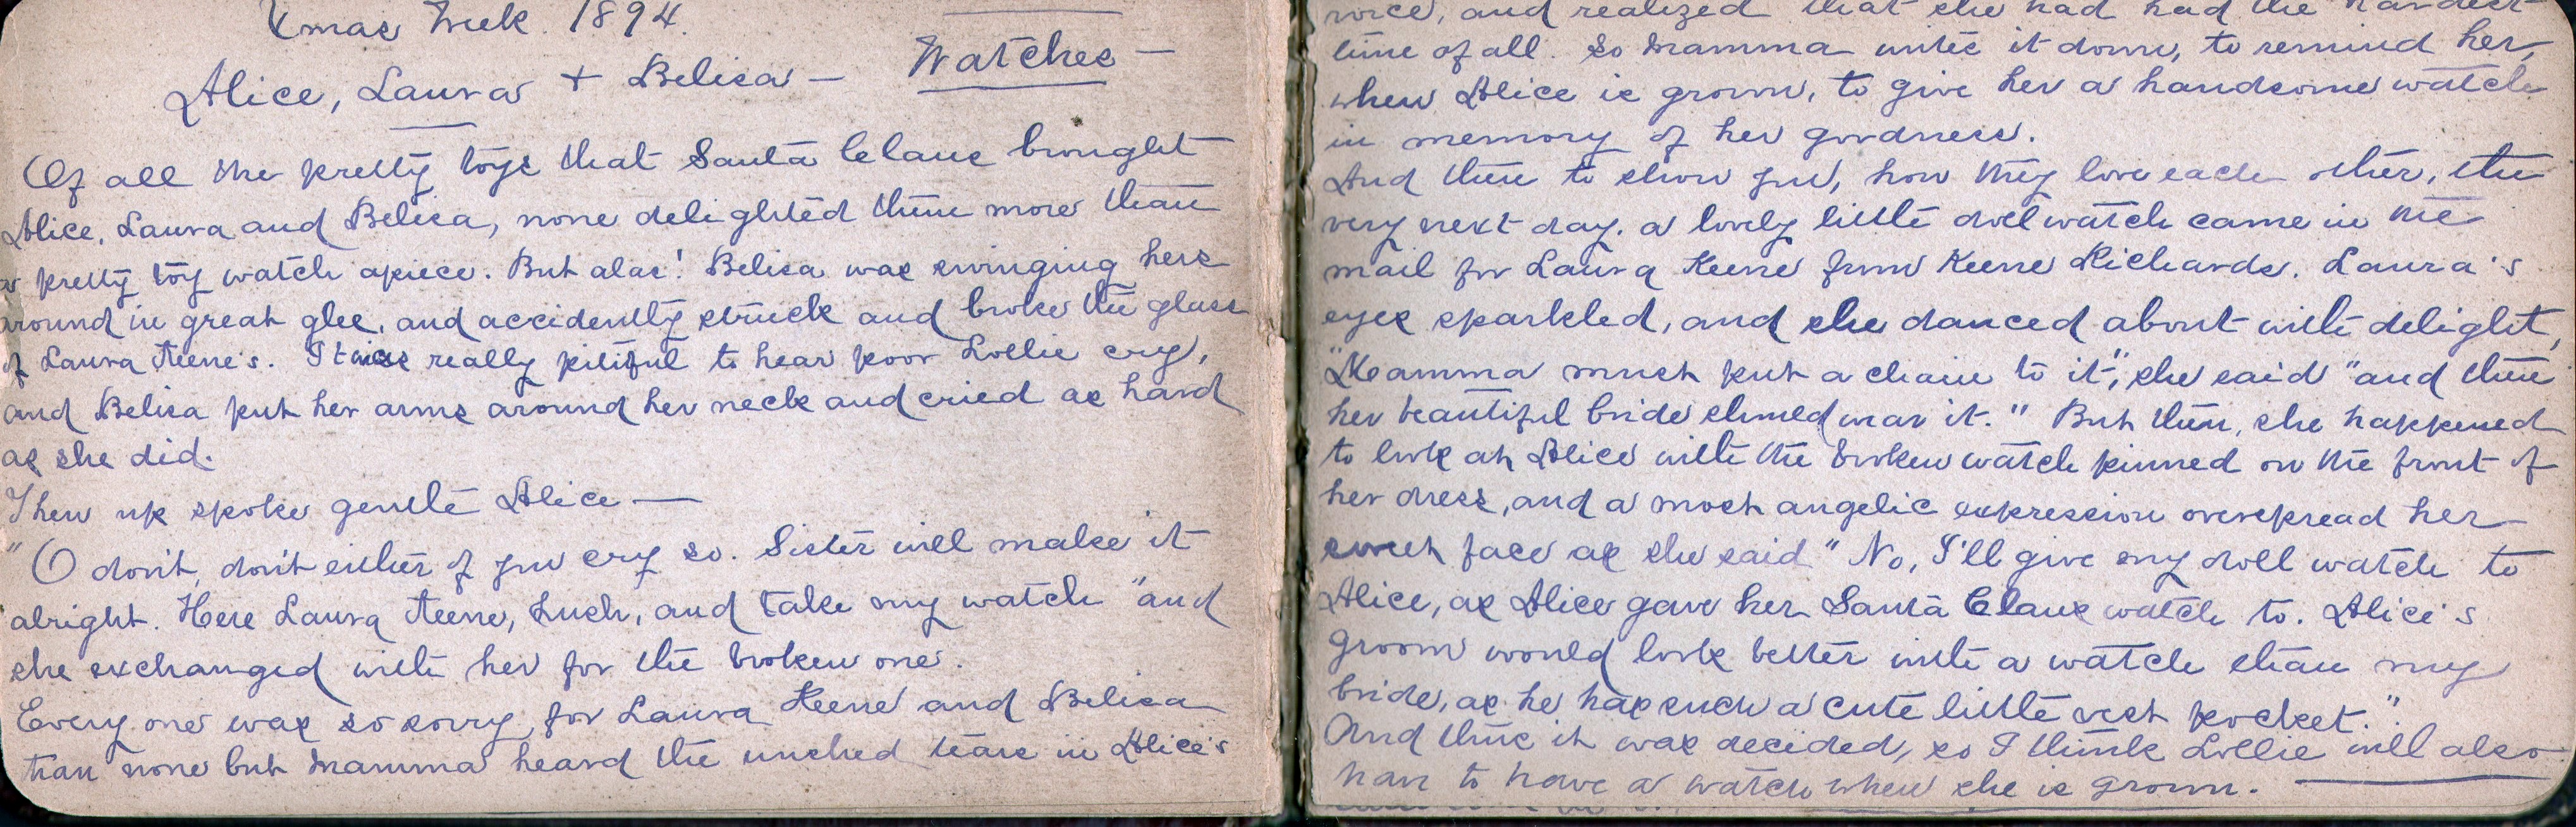 Xmas Week. 1894.
Alice, Laura + Belisa — Watches —
Of all the pretty toys that Santa Claus brought
Alice, Laura and Belisa, none delighted them more than
a pretty toy watch apiece. But alas! Belisa was swinging hers
around in great glee, and accidently struck and broke the glass
of Laura Keene's. It was really pitiful to hear poor Lollie cry,
and Belisa put her arms around her neck and cried as hard
as she did.
Then up spoke gentle Alice —
"O don't, don't either of you cry so. Sister will make it
alright. Here Laura Keene, hush, and take my watch" and
she exchanged with her for the broken one.
Every one was so sorry for Laura Keene and Belisa
that none but Mamma heard the unshed tears in Alice's
voice, and realized that she had had the hardest
time of all. So Mamma writes it down, to remind her,
when Alice is grown, to give her a handsome watch
in memory of her goodness.
And then to show you, how they love each other, the
very next day, a lovely little doll watch came in the
mail for Laura Keene from Keene Richards. Laura's
eyes sparkled, and she danced about with delight,
"Mamma must put a chain to it", she said "and then
her beautiful bride should wear it." But then, she happened
to look at Alice with the broken watch pinned on the front of
her dress, and a most angelic expression overspread her
sweet face as she said "No, I'll give my doll watch to
Alice, as Alice gave her Santa Claus watch to. Alice's
groom would look better with a watch than my
bride, as he has such a cute little vest pocket."
And thus it was decided, so I think Lollie will also
have to have a watch when she is grown. —